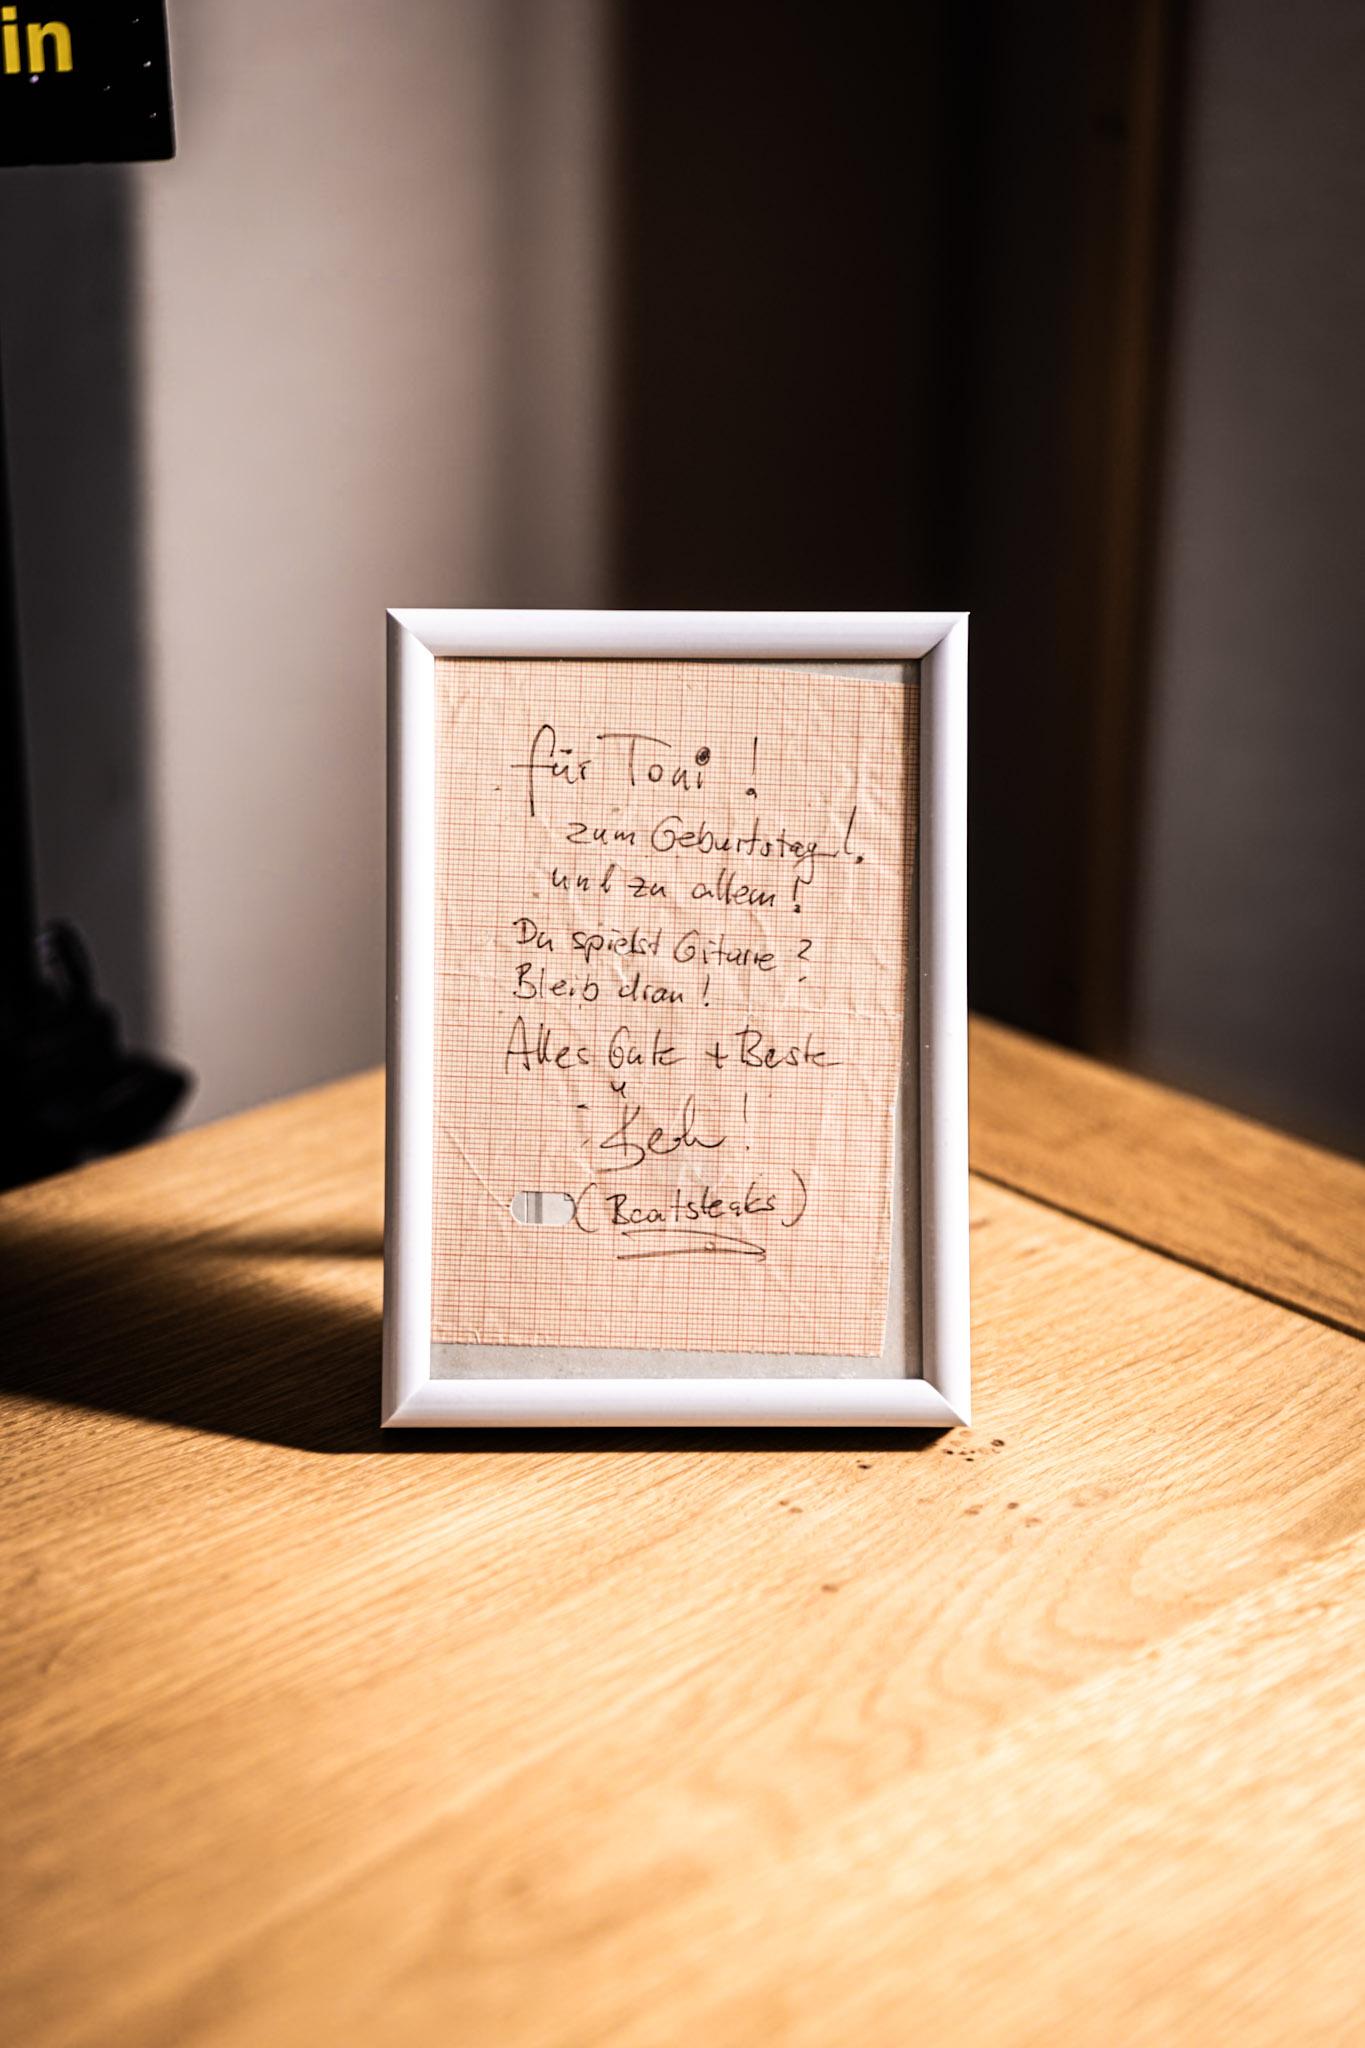 in
für Toni !
zum Geburtstag!
und zu allem!
Du spielst Gitarre ?
Bleib dran !
Alles Gute + Beste
(Beatsteaks)